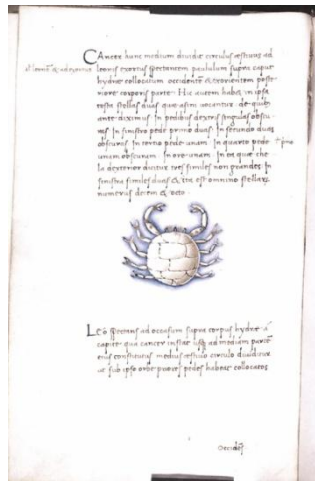 CAncer hunc medium dividit circulus aestivus ad
leonis exortus spectantem paululum supra caput
hydrae collocatum occidente & exorientem poste
riore corporis parte. Hic autem habet in ipsa
testa stellas duas quae asini vocantur de quib
ante diximus. In pedibus dextris singulas obscu
ras. In sinistro pede primo duas. In secundo duas
obscuras. In tertio pede unam. In quarto pede
unam obscuram. In ore unam. In ea quae che
la dexterior dicitur tres similes non grandes. In
sinistra similes duas & ita est omnino stellarum
numerus decem & octo.
LEo spectans ad occasum supra corpus hydrae a
capite qua cancer instat usq ad mediam partem
eius constitutus medius aestivo circulo dividitur
ut sub ipso orbe priores pedes habeat collocatos
Occidēs